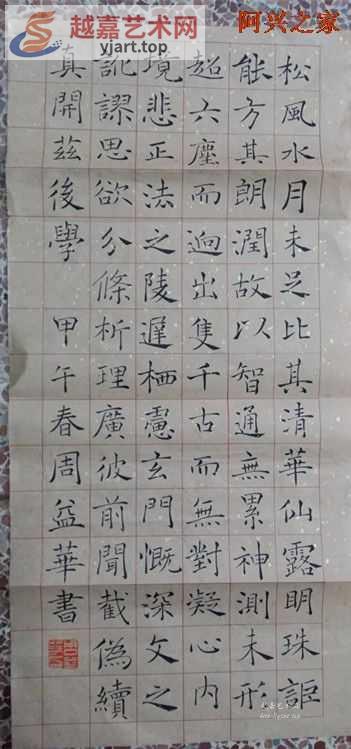 越嘉艺术网
阿兴之家
松風水月未足比其清華仙露明珠詎
能方其朗潤故以智通無累神測未形
超六塵而逈出隻千古而無對凝心內
境悲正法之陵遲栖慮玄門慨深文之
訛謬思欲分條析理廣彼前聞截偽續
真開茲後學 甲午春周益華書